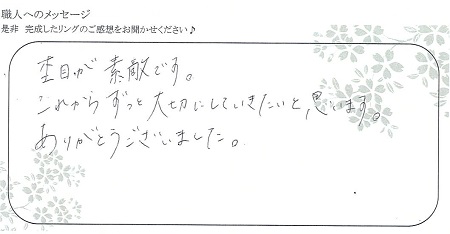 職人へのメッセージ
是非 完成したリングのご感想をお聞かせください♪
杢目が素敵です。
これからずっと大切にしていきたいと思います。
ありがとうございました。